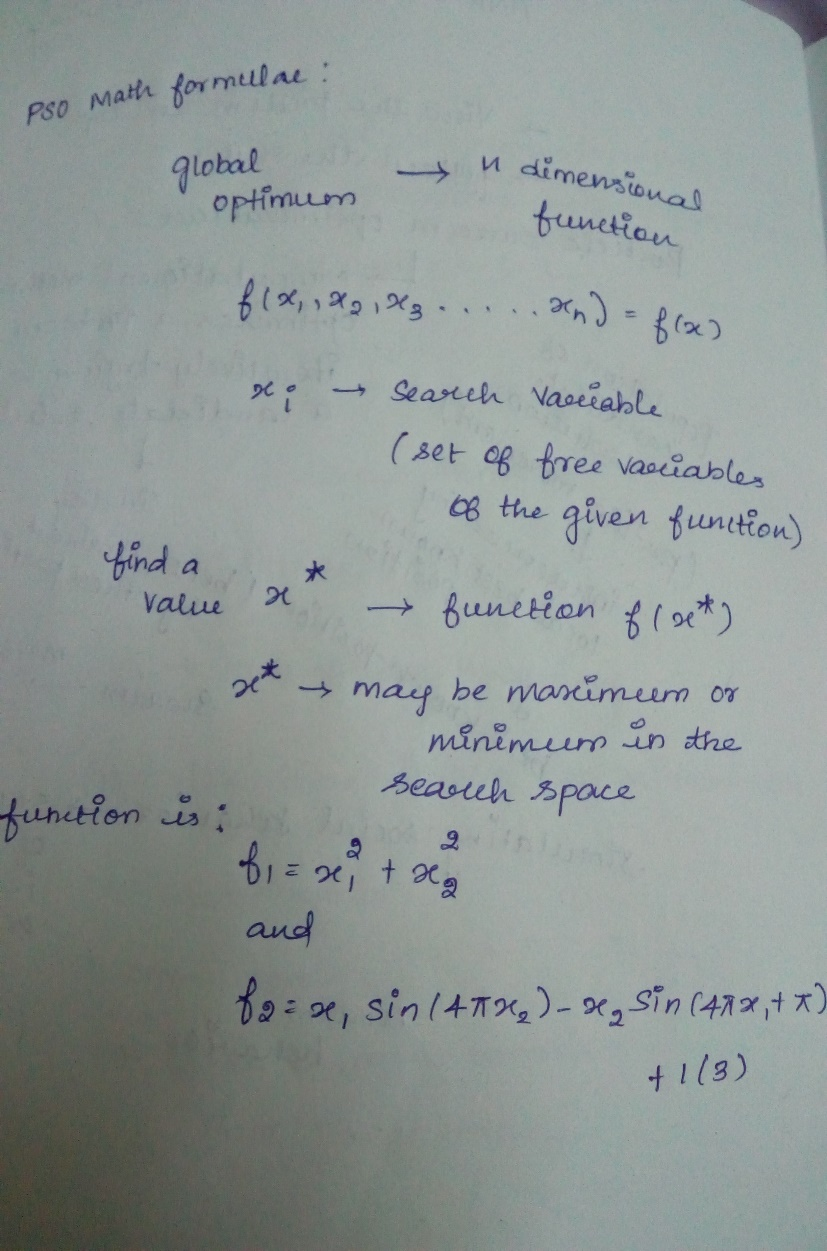 PSO Math formulae :
global → n dimensional
optimum function
f(x₁, x₂, x₃ ...... xₙ) = f(x)
xᵢ → search variable
(set of free variables
of the given function)
find a
value x* → function f(x*)
x* → may be maximum or
minimum in the
search space
function is :
f₁ = x₁² + x₂²
and
f₂ = x₁ sin(4πx₂) - x₂ sin(4πx₁ + π)
+ 1(3)